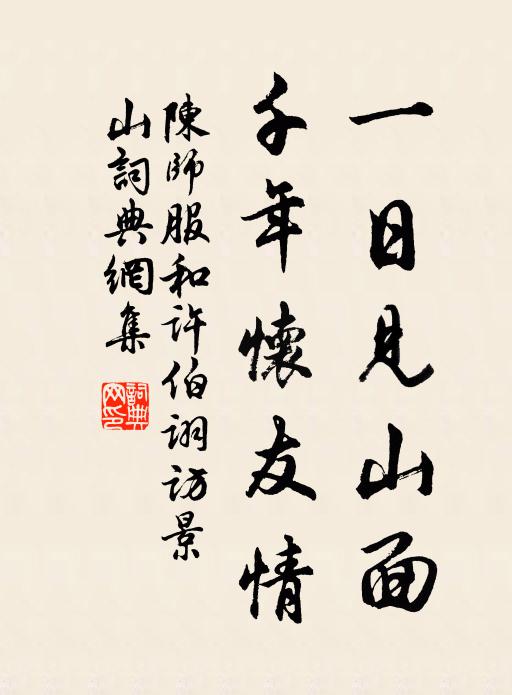 一日見山面
千年懷友情
陳師服和許伯詡訪景
山詞典網集
詞典
网印